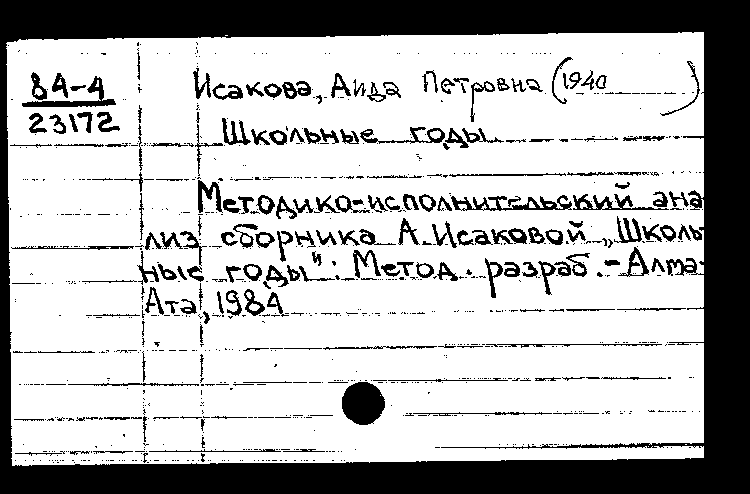 84-4
23172
Исакова, Аида Петровна (1940 )
Школьные годы.
Методико-исполнительский ана
лиз сборника А.Исаковой „Школь-
ные годы": Метод. разраб.-Алма-
Ата, 1984